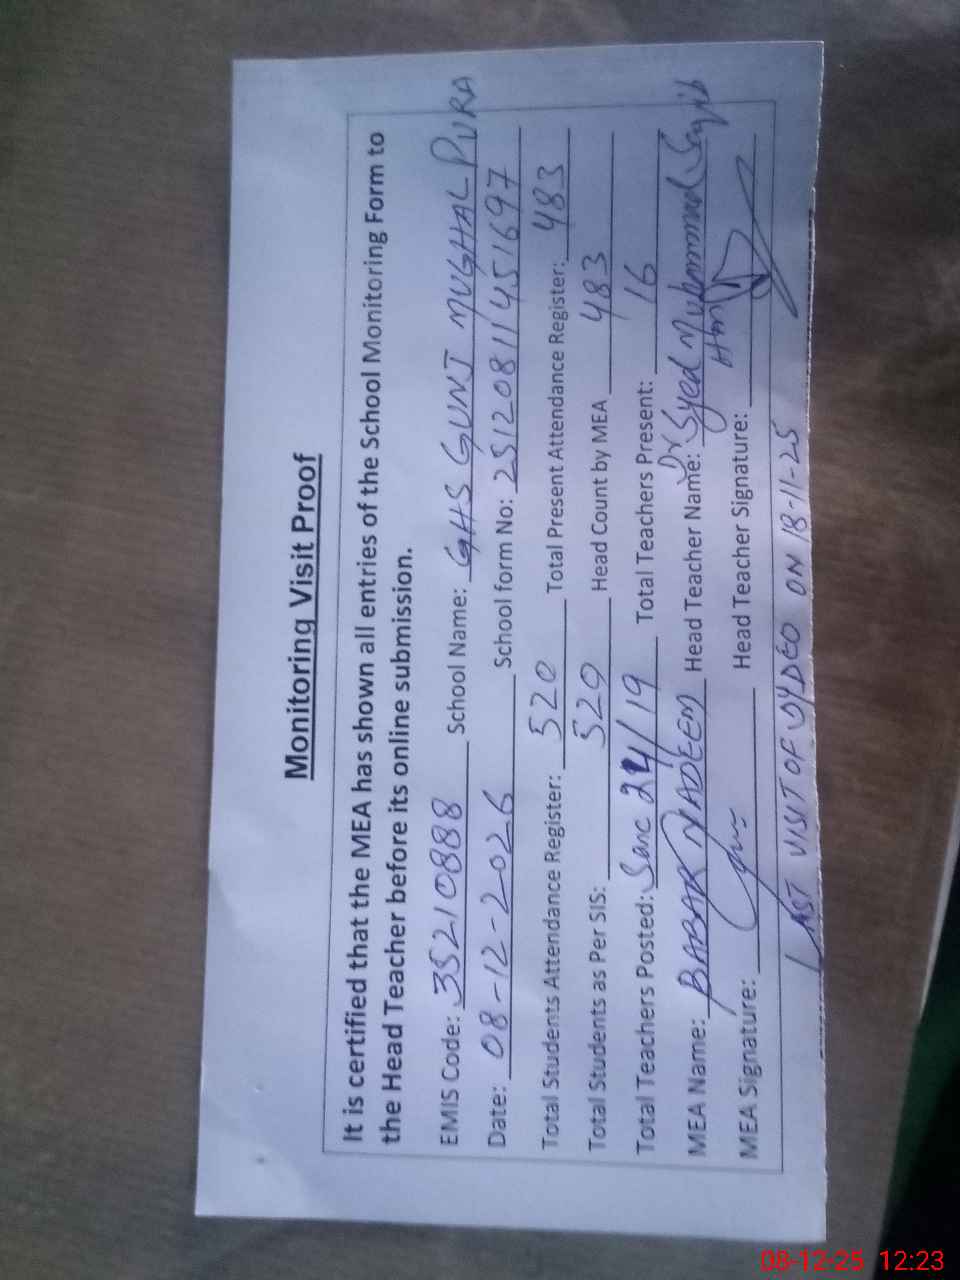 Monitoring Visit Proof
It is certified that the MEA has shown all entries of the School Monitoring Form to
the Head Teacher before its online submission.
EMIS Code: 35210888 School Name: GHS GUNJ MUGHAL PURA
Date: 08-12-2026 School form No: 251208114451697
Total Students Attendance Register: 520 Total Present Attendance Register: 483
Total Students as Per SIS: 520 Head Count by MEA 483
Total Teachers Posted: Sanc 24/19 Total Teachers Present: 16
MEA Name: BABAR NADEEM Head Teacher Name: Dr Syed Muhammad
MEA Signature: Head Teacher Signature:
LAST VISIT OF DYDEO ON 18-11-25
08-12-25 12:23